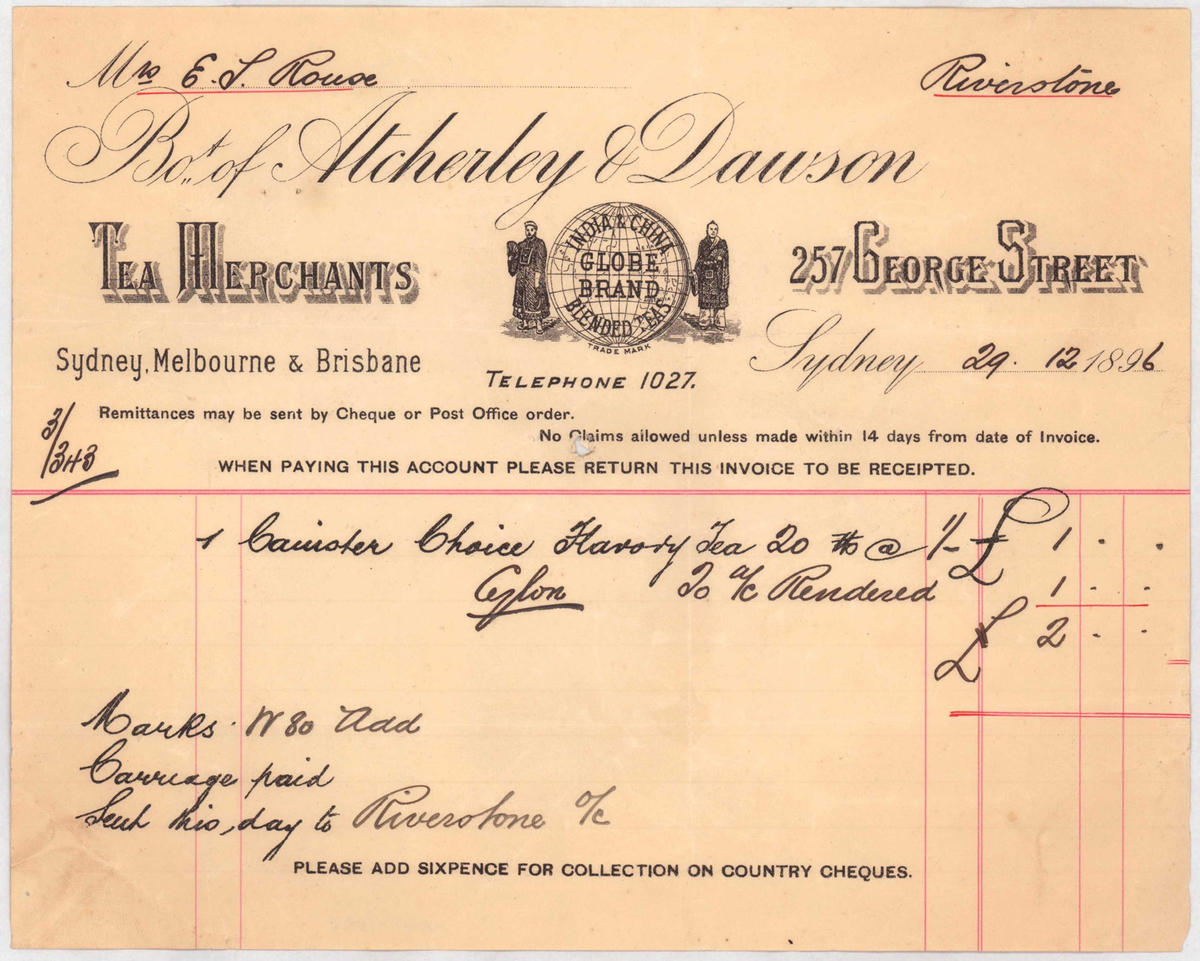 Mrs E. S. Rouse
Riverstone
Bo.t of Atcherley & Dawson
TEA MERCHANTS
INDIA & CHINA
GLOBE
BRAND
BLENDED TEAS
TRADE MARK
257 GEORGE STREET
Sydney, Melbourne & Brisbane
TELEPHONE 1027.
Sydney 29. 12 1896
3/343
Remittances may be sent by Cheque or Post Office order.
No Claims allowed unless made within 14 days from date of Invoice.
WHEN PAYING THIS ACCOUNT PLEASE RETURN THIS INVOICE TO BE RECEIPTED.
1 Canister Choice Flavory Tea 20 lbs @ 1/- £ 1 . .
Ceylon To a/c Rendered 1 . .
£ 2 . .
Marks W 80 Add
Carriage paid
Sent this day to Riverstone o/c
PLEASE ADD SIXPENCE FOR COLLECTION ON COUNTRY CHEQUES.